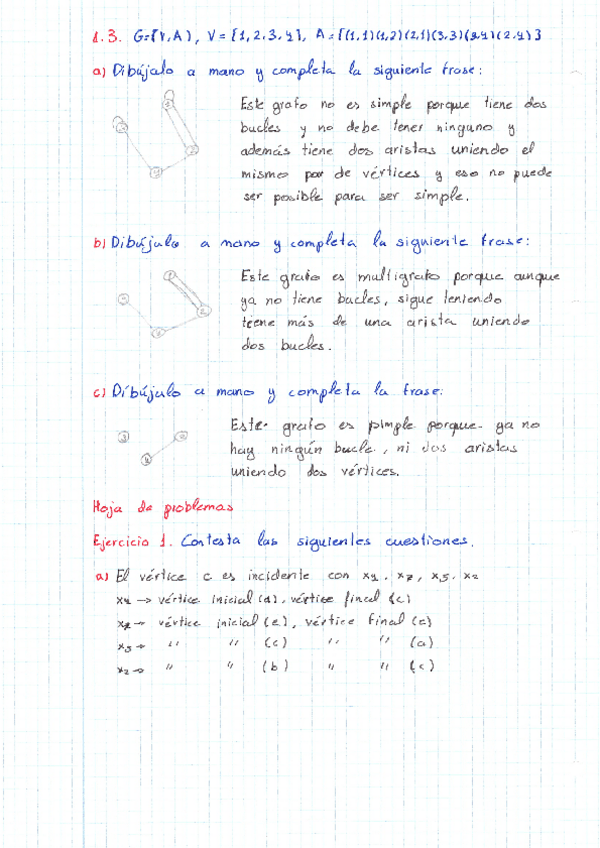 1.3. G=[V,A), V = {1,2,3,4}, A = {(1,1)(1,2)(2,1)(3,3)(3,4)(2,4)}
a) Dibújalo a mano y completa la siguiente frase:
Este grafo no es simple porque tiene dos
bucles y no debe tener ninguno y
además tiene dos aristas uniendo el
mismo par de vértices y eso no puede
ser posible para ser simple.
b) Dibújalo a mano y completa la siguiente frase:
Este grafo es multigrafo porque aunque
ya no tiene bucles, sigue teniendo
tiene más de una arista uniendo
dos bucles.
c) Dibújalo a mano y completa la frase:
Este grafo es simple porque ya no
hay ningún bucle, ni dos aristas
uniendo dos vértices.
Hoja de problemas
Ejercicio 1. Contesta las siguientes cuestiones.
a) El vértice c es incidente con x4, x7, x5, x2
x4 → vértice inicial (d), vértice final (c)
x7 → vértice inicial (e), vértice final (c)
x5 → " " (c) " " (a)
x2 → " " (b) " " (c)